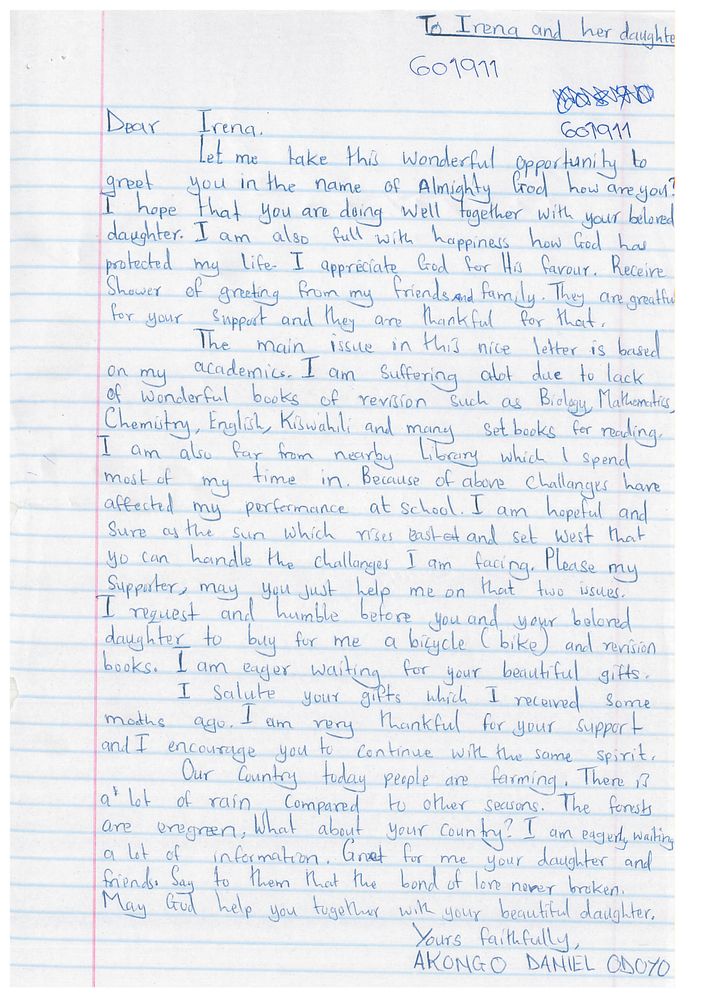 To Irena and her daughte
601911
601911
Dear Irena.
Let me take this wonderful opportunity to
greet you in the name of Almighty God how are you?
I hope that you are doing well together with your beloved
daughter. I am also full with happiness how God has
protected my life. I appreciate God for His favour. Receive
Shower of greeting from my friends and family. They are greatfu
for your support and they are thankful for that.
The main issue in this nice letter is based
on my academics. I am suffering alot due to lack
of wonderful books of revision such as Biology, Mathematics,
Chemistry, English, Kiswahili and many set books for reading.
I am also far from nearby Library which I spend
most of my time in. Because of above challanges have
affected my performance at school. I am hopeful and
Sure as the sun which rises east and set West that
yo can handle the challanges I am facing. Please my
Supporter, may you just help me on that two issues.
I request and humble before you and your beloved
daughter to buy for me a bicycle (bike) and revision
books. I am eager waiting for your beautiful gifts.
I salute your gifts which I received some
moths ago. I am very thankful for your support
and I encourage you to continue with the same spirit.
Our Country today people are farming. There is
a lot of rain compared to other seasons. The forests
are evegreen, What about your country? I am eagerly waiting
a lot of information. Greet for me your daughter and
friends. Say to them that the bond of love never broken.
May God help you together with your beautiful daughter.
Yours faithfully,
AKONGO DANIEL ODOYO